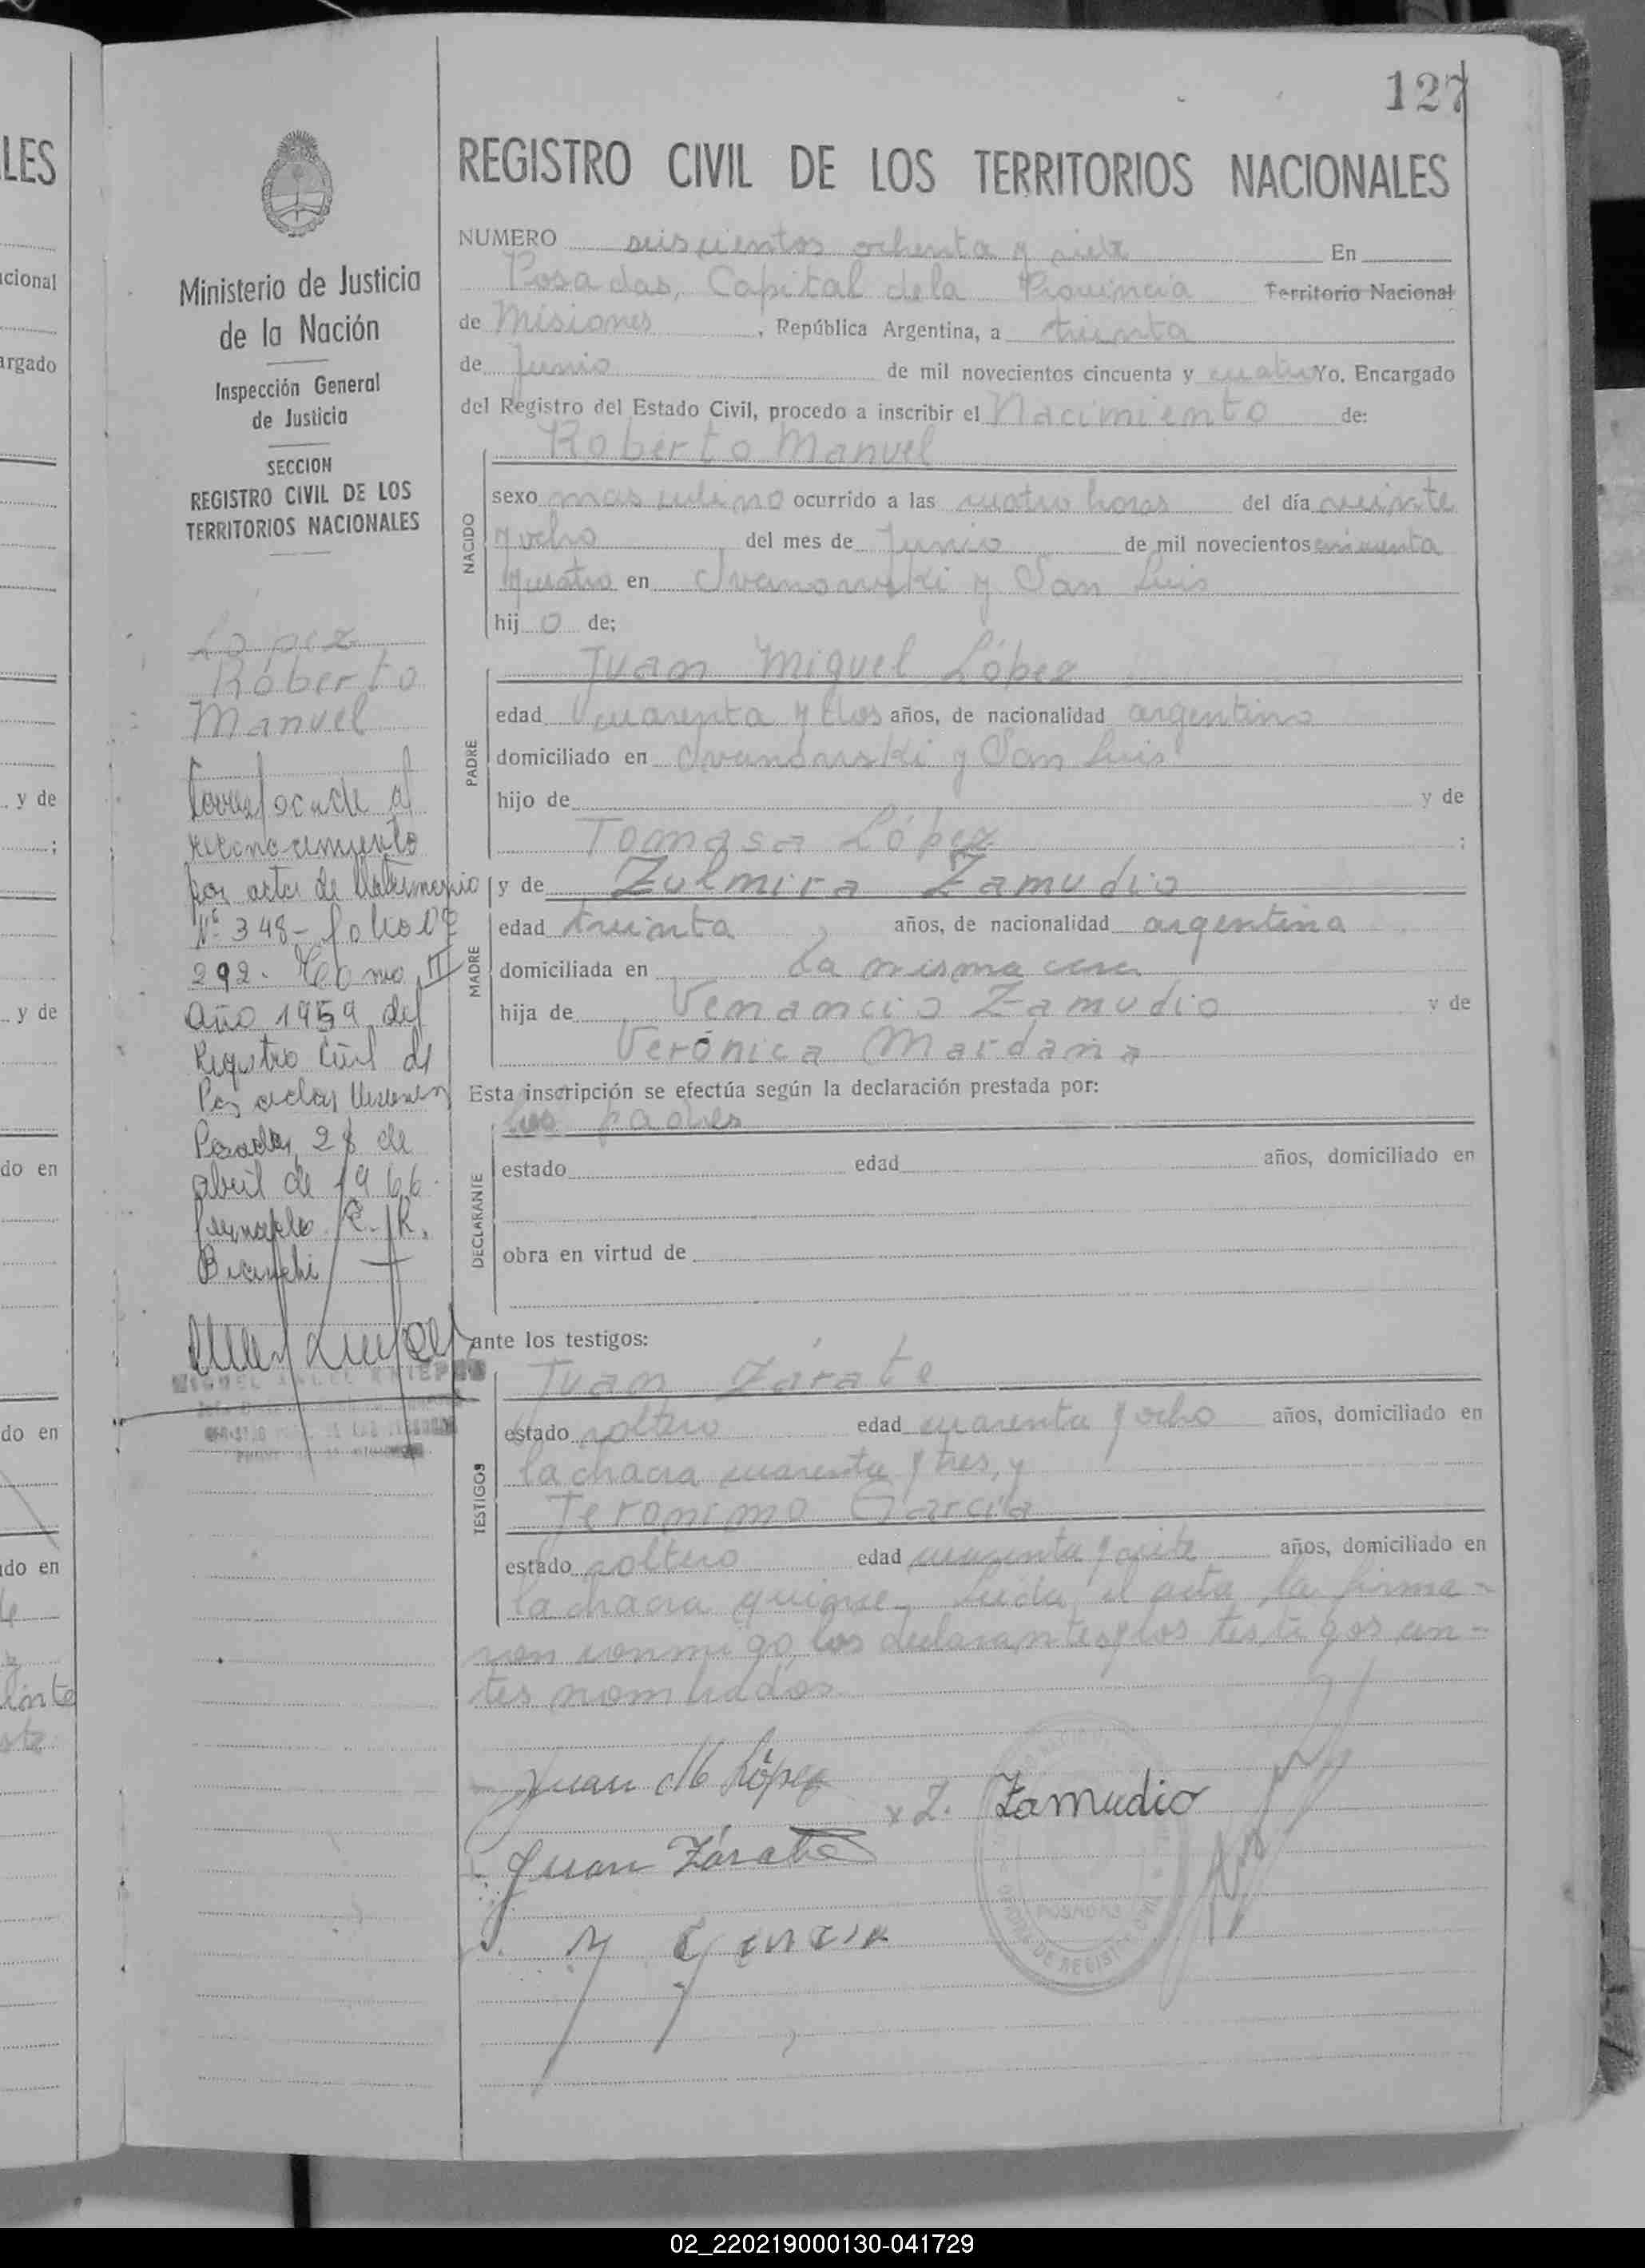 127
REGISTRO CIVIL DE LOS TERRITORIOS NACIONALES
NUMERO seiscientos ochenta y siete En
Posadas, Capital de la Provincia Territorio Nacional
de Misiones, República Argentina, a treinta
de Junio de mil novecientos cincuenta y cuatro Yo, Encargado
del Registro del Estado Civil, procedo a inscribir el Nacimiento de:
Roberto Manuel
NACIDO
sexo masculino ocurrido a las cuatro horas del día veinte
y ocho del mes de Junio de mil novecientos cincuenta
y cuatro en Ivanowski y San Luis
hij o de;
PADRE
Juan Miguel López
edad cuarenta y dos años, de nacionalidad argentino
domiciliado en Ivanowski y San Luis
hijo de y de
Tomasa López ;
MADRE
y de Zulmira Zamudio
edad treinta años, de nacionalidad argentina
domiciliada en La misma casa
hija de Venancio Zamudio y de
Verónica Maidana
Esta inscripción se efectúa según la declaración prestada por:
DECLARANTE
los padres
estado edad años, domiciliado en
obra en virtud de
ante los testigos:
TESTIGOS
Juan Zárate
estado soltero edad cuarenta y ocho años, domiciliado en
la chacra cuarenta y tres, y
Jeronimo García
estado soltero edad cuarenta y siete años, domiciliado en
la chacra quince. Leída el acta, la firma-
ron conmigo, los declarantes y los testigos an-
tes nombrados.
Juan M López
x Z. Zamudio
Juan Zárate
POSADAS
Ministerio de Justicia
de la Nación
Inspección General
de Justicia
SECCION
REGISTRO CIVIL DE LOS
TERRITORIOS NACIONALES
Lopez
Roberto
Manuel
Corresponde al
reconocimiento
por acta de Matrimonio
Nº 348- folio Nº
292. Tomo III
Año 1959 del
Registro Civil de
Posadas Misiones
Posadas, 28 de
abril de 1966.
E. R.
Bianchi
MIGUEL ANGEL
LES
cional
argado
y de
;
y de
do en
do en
do en
02_220219000130-041729